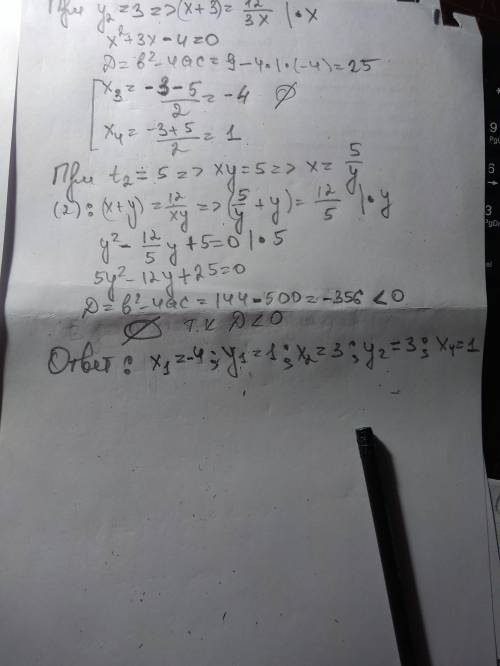 При y₂ = 3 => (x+3) = 12/3x | • x
x² + 3x - 4 = 0
D = b² - 4ac = 9 - 4 • 1 • (-4) = 25
[ x₃ = (-3-5)/2 = -4 ∅
x₄ = (-3+5)/2 = 1
При t₂ = 5 => xy = 5 => x = 5/y
(2): (x+y) = 12/xy => (5/y + y) = 12/5 | • y
y² - 12/5 y + 5 = 0 | • 5
5y² - 12y + 25 = 0
D = b² - 4ac = 144 - 500 = -356 < 0
∅ т.к D < 0
Ответ: x₁ = -4; y₁ = 1; x₂ = 3; y₂ = 3; x₄ = 1